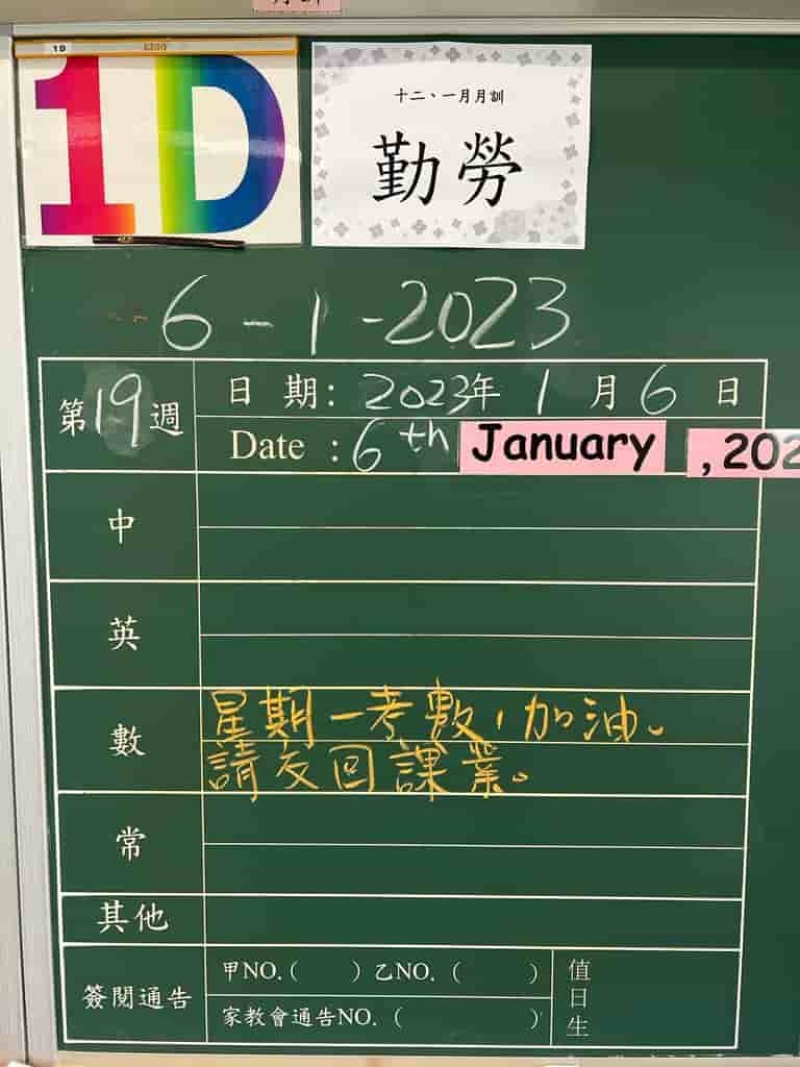 1D
1D
十二、一月月訓
勤勞
6-1-2023
第19週
日 期: 2023年 1 月 6 日
Date : 6th January , 202
中
英
數
星期一考數,加油。
請交回課業。
常
其他
簽閱通告
甲NO.( ) 乙NO. ( )
家教會通告NO. ( )
值日生